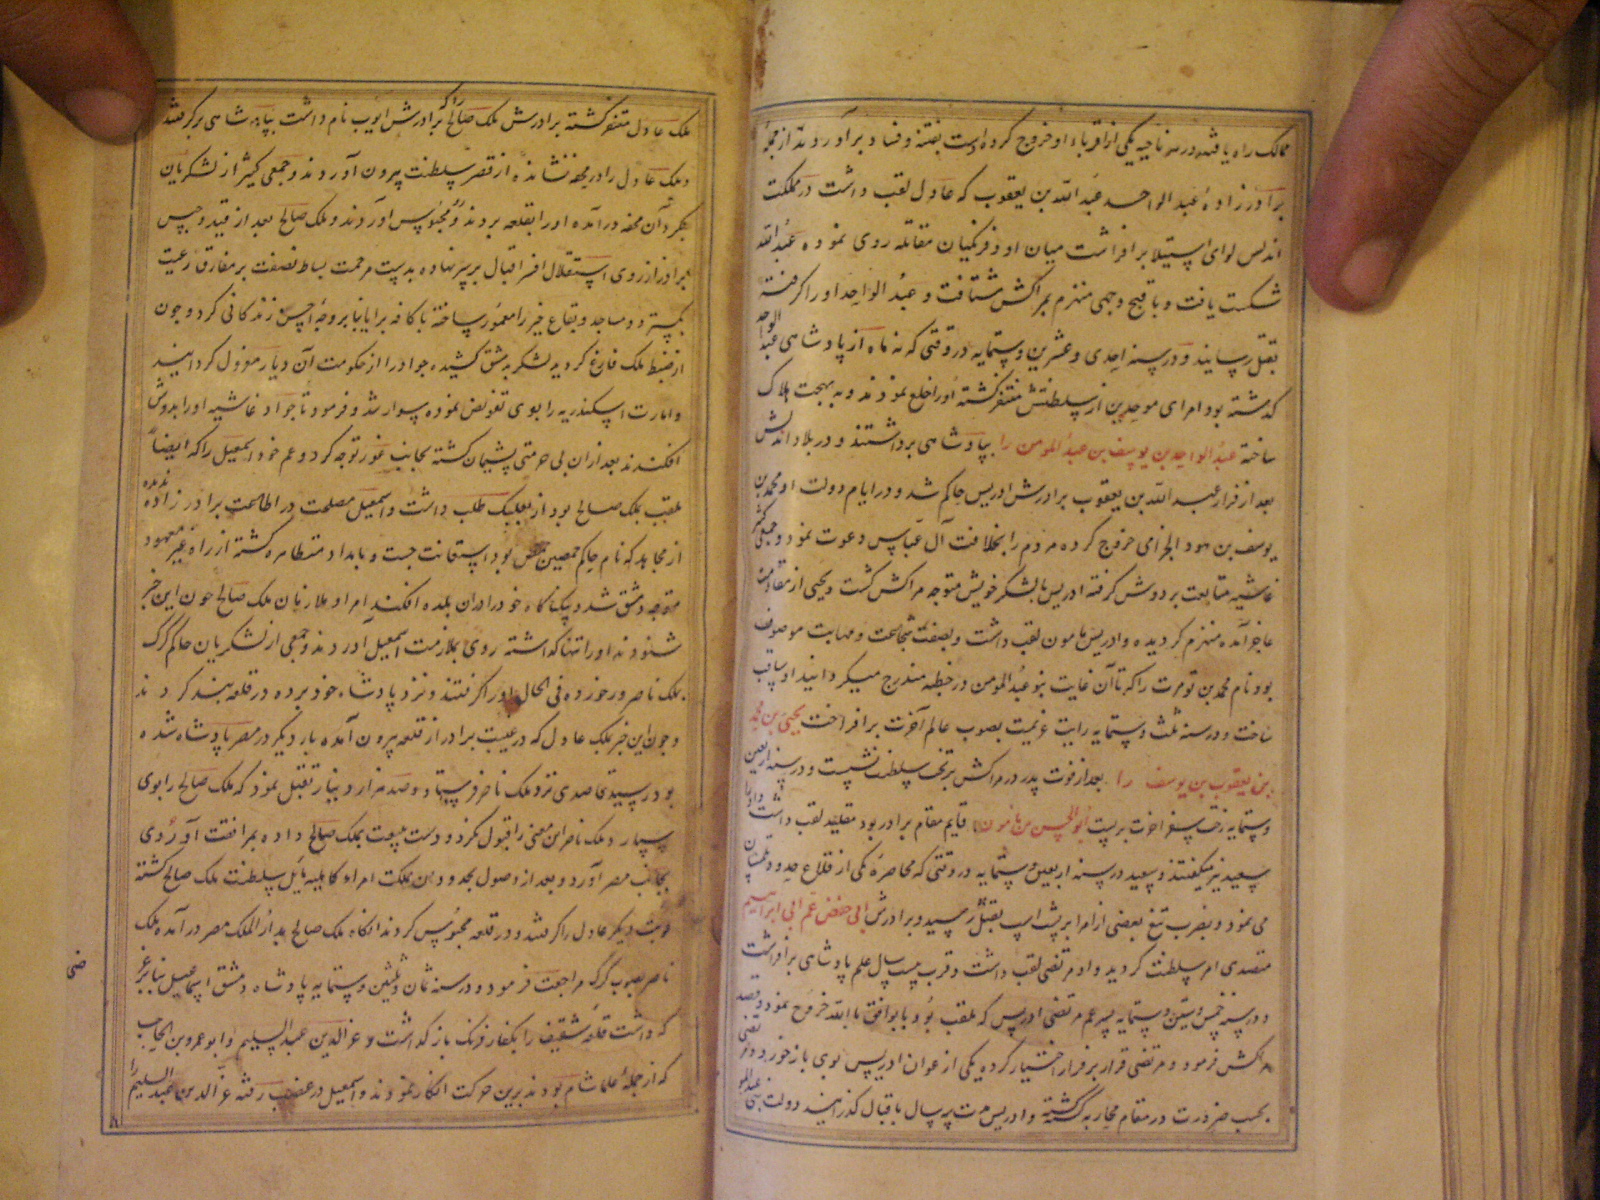 ممالک راه یافته در هر ناحیه یکی از اقرباء او خروج کرده دست بفتنه و فساد برآوردند از جمله
برادرزادهٔ عبد الواحد عبد الله بن یعقوب که عادل لقب داشت در مملکت
اندلس لوای استیلا برافراشت میان او و فرنگیان مقاتله روی نموده عبد الله
شکست یافت و باقبح وجهی منهزم بمراکش شتافت و عبد الواحد او را گرفته
بقتل رسانید و در سنه احدی و عشرین و ستمایه در وقتی که نه ماه از پادشاهی عبد الواحد
گذشته بود امرای موحدین از سلطنتش متنفر گشته او را خلع نمودند و هلاک
ساخته عبد الواحد بن یوسف بن عبد المومن را بپادشاهی برداشتند و در بلاد اندلس
بعد از فرار عبد الله بن یعقوب برادرش ادریس حاکم شد و در ایام دولت او محمد بن
یوسف بن هود الجزامی خروج کرده مردم را بخلافت آل عباس دعوت نمود و جمعی کثیر
غاشیه متابعت بر دوش گرفته ادریس با لشکر خویش متوجه مراکش گشت و یحیی از مقاومت
عاجز آمده منهزم گردیده و ادریس مامون لقب داشت و بصفت شجاعت و مهابت موصوف
بود و نام محمد بن تومرت را که تا آن غایت بنو عبد المومن در خطبه مندرج میگردانیدند او ساقط
ساخت و در سنه ثلث و ستمایه رایت عزیمت بصوب عالم آخرت برافراخت یحیی بن محمد
بن یعقوب بن یوسف را بعد از فوت پدر در مراکش بر تخت سلطنت نشست و در سنه اربعین
و ستمایه رخت بسفر آخرت بربست ابو الحسن بن مامون قایم مقام برادر بود لقب داشت و او را
سعید نیز میگفتند و سعید در سنه اربعین و ستمایه در وقتی که محاصرهٔ یکی از قلاع حدود تلمسان
می نمود بضرب تیغ بعضی از امرا بر پشت اسپ بقتل رسید و برادرش ابی حفص عم ابی ابراهیم
متصدی امر سلطنت گردید و او مرتضی لقب داشت و قرب بیست سال علم پادشاهی برافراشت
و در سنه خمس و ستین و ستمایه پسر عم مرتضی ادریس که ملقب بود با بواثق بالله خروج نمود و قصد
مراکش فرمود و مرتضی قرار بر فرار اختیار کرده یکی از عوان ادریس بوی بازخورد و مرتضی
بحسب ضرورت در مقام محاربه گشته و ادریس مدت سه سال باقبال گذرانید دولت بنی عبد المو
ملک عادل متنفر گشته برادرش ملک صالح را که برادرش ایوب نام داشت بپادشاهی برگرفتند
و ملک عادل را در محفه نشانده از قصر سلطنت بیرون آوردند و جمعی کثیر از لشکریان
بگرد آن محفه درآمده او را بقلعه بردند و محبوس آوردند و ملک صالح بعد از قید و حبس
برادر از روی استقلال افسر اقبال بر سر نهاده بدست مرحمت بساط نصفت بر مفارق رعیت
بگسترد و مساجد و بقاع خیر را معمور ساخته با کافه برایا بر وجه احسن زندگانی کرد و چون
از ضبط ملک فارغ گردید لشکر بدمشق کشیده جواد را از حکومت آن دیار معزول گردانید
و امارت اسکندریه را بوی تفویض نموده سوار شد و فرمود تا جواد غاشیه او را بدوش
افکندند بعد از آن بی حرمتی پشیمان گشته بجانب غور توجه کرد و عم خود اسمعیل را که ایضاً
ملقب بملک صالح بود از بعلبک طلب داشت و اسمعیل مصلحت در اطاعت برادرزاده ندیده
از مجاهد که نام حاکم حمص بود استعانت جست و بامداد متظاهر گشته از راه غیر معهود
متوجه دمشق شد و یکناکاه خود را در آن بلده افکند امرا و ملازمان ملک صالح چون این خبر
شنودند او را تنها گذاشته روی بملازمت اسمعیل آوردند و جمعی از لشکریان حاکم کرک
بملک ناصر ورخورده فی الحال او را گرفتند و نزد پادشاه خود برده در قلعه بند کردند
و چون این خبر بملک عادل که در غیبت برادر از قلعه بیرون آمده بار دیگر در مصر پادشاه شده
بود رسید قاصدی نزد ملک ناصر فرستاد و صد هزار دینار تقبل نمود که ملک صالح را بوی
سپارد ملک ناصر این معنی را قبول نکرد و دست بیعت بملک صالح داده بمرافقت او روی
بجانب مصر آورد و بعد از وصول بحدود آن مملکت امراء کاملیه مایل سلطنت ملک صالح گشته
نوبت دیگر عادل را گرفتند و در قلعه محبوس کردند آنگاه ملک صالح بدار الملک مصر درآمده ملک
ناصر بصوب کرک مراجعت فرمود و در سنه ثمان و ثلثین و ستمایه پادشاه دمشق اسماعیل بنا بر غر
ضی
که داشت قلعه شقیف را بکفار فرنگ بازگذاشت و عز الدین عبد السلیم و ابو عمرو بن الحاجب
که از جملهٔ علماء شام بودند برین حرکت انکار نمودند و اسمعیل در غضب رفته عز الدین عبد السلیم را